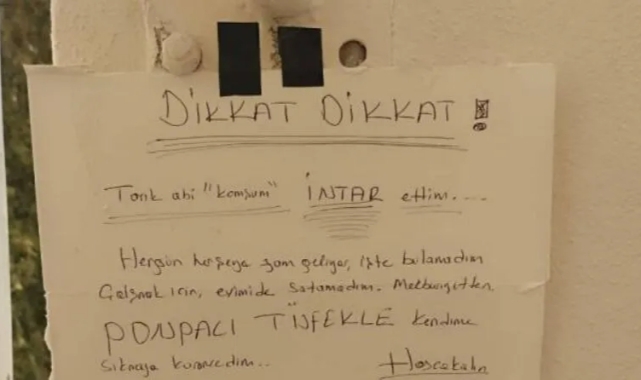 DİKKAT DİKKAT !
Tarık abi "komşum" İNTAR ettim....
Hergün herşeye zam geliyor, işte bulamadım
Çalışmak için, evimide satamadım. Mecburiyetten,
POMPALI TÜFEKLE kendime
sıkmaya
Hoşcakalın